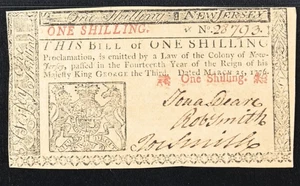 One Shilling. NEW JERSEY
ONE SHILLING. No 28793.
THIS Bill of ONE SHILLING
Proclamation, is emitted by a Law of the Colony of New-
Jersey, passed in the Fourteenth Year of the Reign of his
Majesty King GEORGE the Third. Dated MARCH 25, 1776.
One Shilling.
Jona Deare
Robt Smith
Jos Smith